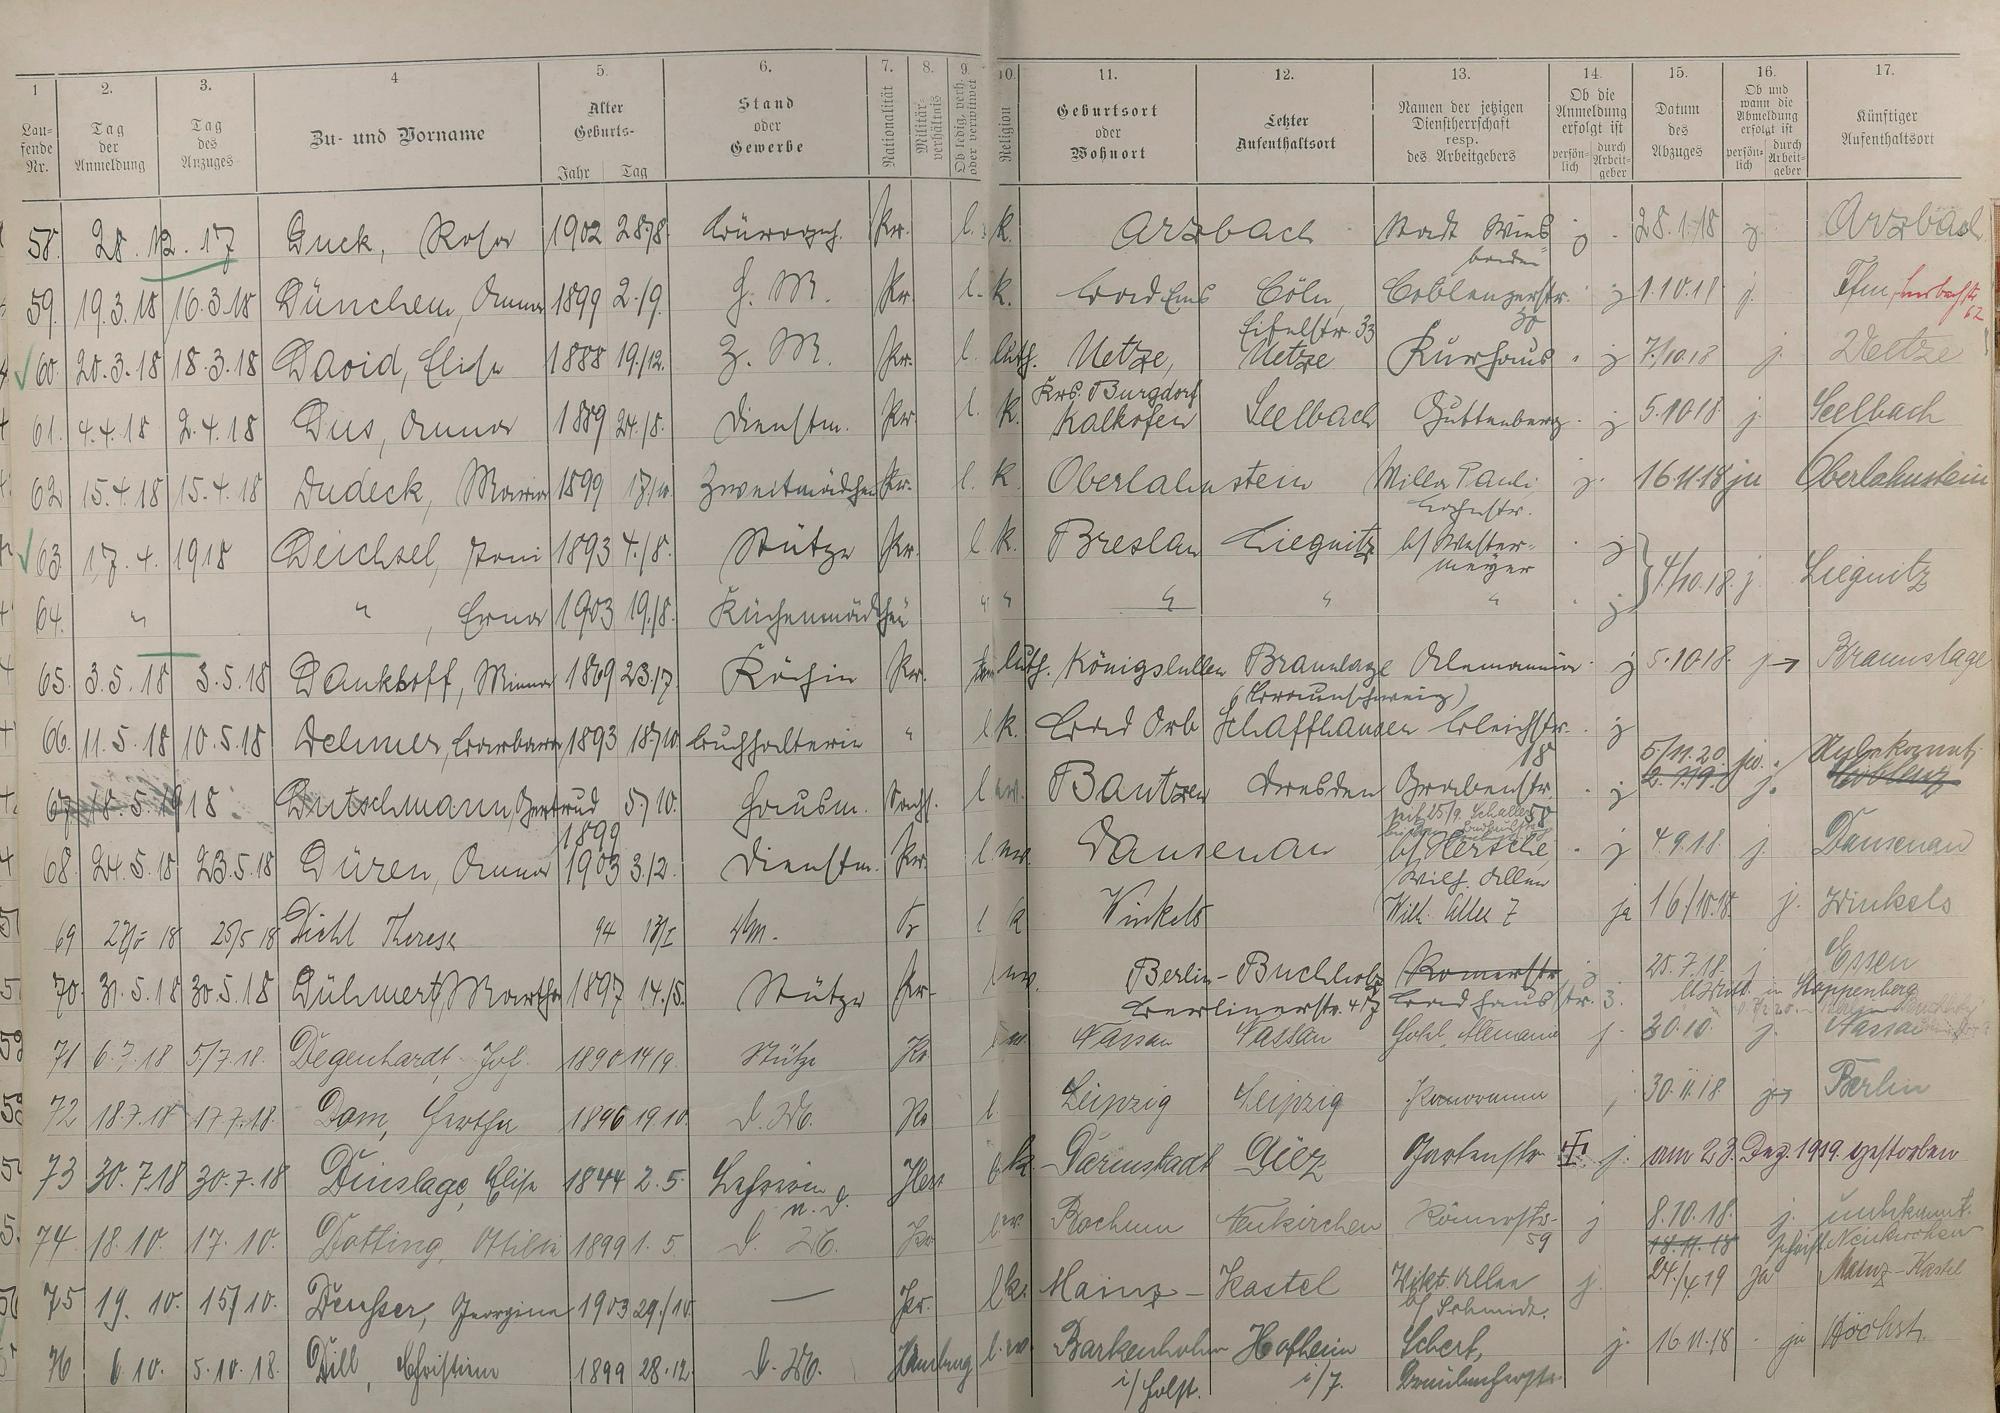 1 2. 3. 4 5. 6. 7. 8. 9. 10. 11. 12. 13. 14. 15. 16. 17.
Laufende Nr. Tag der Anmeldung Tag des Anzuges Zu- und Vorname Alter Geburts- Jahr Tag Stand oder Gewerbe Nationalität Militärverhältnis Ob ledig, verh. oder verwitwet Religion Geburtsort oder Wohnort Letzter Aufenthaltsort Namen der jetzigen Dienstherrschaft resp. des Arbeitgebers Ob die Anmeldung erfolgt ist persönlich durch Arbeitgeber Datum des Abzuges Ob und wann die Abmeldung erfolgt ist persönlich durch Arbeitgeber Künftiger Aufenthaltsort
58. 28. 12. 17 Duck, Rosa 1902 28/8. Pr. l. k. Arzbach Stadt Wiesbaden j 28.1.18 j. Arzbach
59. 19.3.18 16.3.18 Dünchem, Anna 1899 2./9. H. M. Pr. l. k. Bad Ems Cöln, Eifelstr. 33 Coblenzerstr. 30 j 1.10.18 j. Ffm,
60. 20.3.18 18.3.18 David, Elise 1888 19./12. Z. M. Pr. l. luth. Uetze, Krs. Burgdorf Uetze Kurhaus j 7./10 18 j. Uetze
61. 4.4.18 2.4.18 Dus, Anna 1889 24./8. Dienstm. Pr. l. k. Kalkofen Seelbach Guttenberg j 5.10 18 j. Seelbach
62 15.4.18 15.4.18 Dudeck, Maria 1899 Zweitmädchen Pr. l. k. Oberlahnstein Villa Pauli, j. 16.11.18 ja Oberlahnstein
63 17.4. 1918 Deichsel, Toni 1893 4./8. Stütze Pr. l. k. Breslau Liegnitz b/ Westermeyer j 4/10.18. j. Liegnitz
64. " " , Erna 1903 19./8. Küchenmädchen " " " " " j
65. 3.5.18 3.5.18 Dankhoff, Minna 1869 23./7. Köchin Pr. luth. Königslutter Braunlage (Braunschweig) Alemannia j 5.10 18. j Braunslage
66. 11.5.18 10.5.18 Dehmer, Barbara 1893 18/10 Buchhalterin " l k. Bad Orb Schaffhausen Bleichstr. 18 j 5/11.20. Unbekannt
67 18.5.1918 Dutschmann, Gertrud 1899 5./10. Hausm. Sachs. l ev. Bautzen Dresden Grabenstr. 58 j j. Coblenz
68. 24.5.18 23.5.18 Düren, Anna 1903 3./2. Dienstm. Pr. l. ev. Dausenau b/ Hersche, Wilh. Allee j 4.9.18 j. Dausenau
69 27/5 18 25/5 18 Diehl Therese 94 Dm. Pr l k Winkels Wilh. Allee 7 ja 16/10.18. j. Winkels
70. 31.5.18 30.5.18 Dühmert, Martha 1897 14./5. Stütze Pr. l ev. Berlin-Buchholz Berlinerstr. 47 Römerstr Badhausstr. 3. j 25.7.18. j Essen Stoppenberg
71 6.7.18 5/7.18. Degenhardt, Jos. 1890 14/9. Stütze Pr l ev. Nassau Nassau Hotel Alemania j. 30.10 j. Nassau
72 18.7.18 17.7.18. Dom, Hertha 1896 19.10. D. M. Pr l. Leipzig Leipzig Panorama j. 30.11.18 Berlin
73 30.7.18 30.7.18 Dinslage, Elise 1844 2.5. Lehrerin a. D. Hess k. Darmstadt Diez Gartenstr j. am 23. Dez. 1919. gestorben
74 18.10. 17.10. Dotting, Ottilie 1899 1.5. D. M. Pr l. ev. Bochum Neukirchen Römerstr. 59 j 8.10.18. j. unbekannt.
18.11.18 Neukirchen
75 19.10. 15/10. Deusser, Georgine 1903 29./10. — Pr. l k. Mainz-Kastel Vikt. Allee b/ Schmidt. j. 24./4.19 ja Mainz-Kastel
76 6.10. 5.10.18. Dill, Christine 1899 28.12. D. M. Hamburg l. ev. Barkenholm i/Holst. Hofheim i/T. Scherf, j. 16.11.18 ja Höchst.